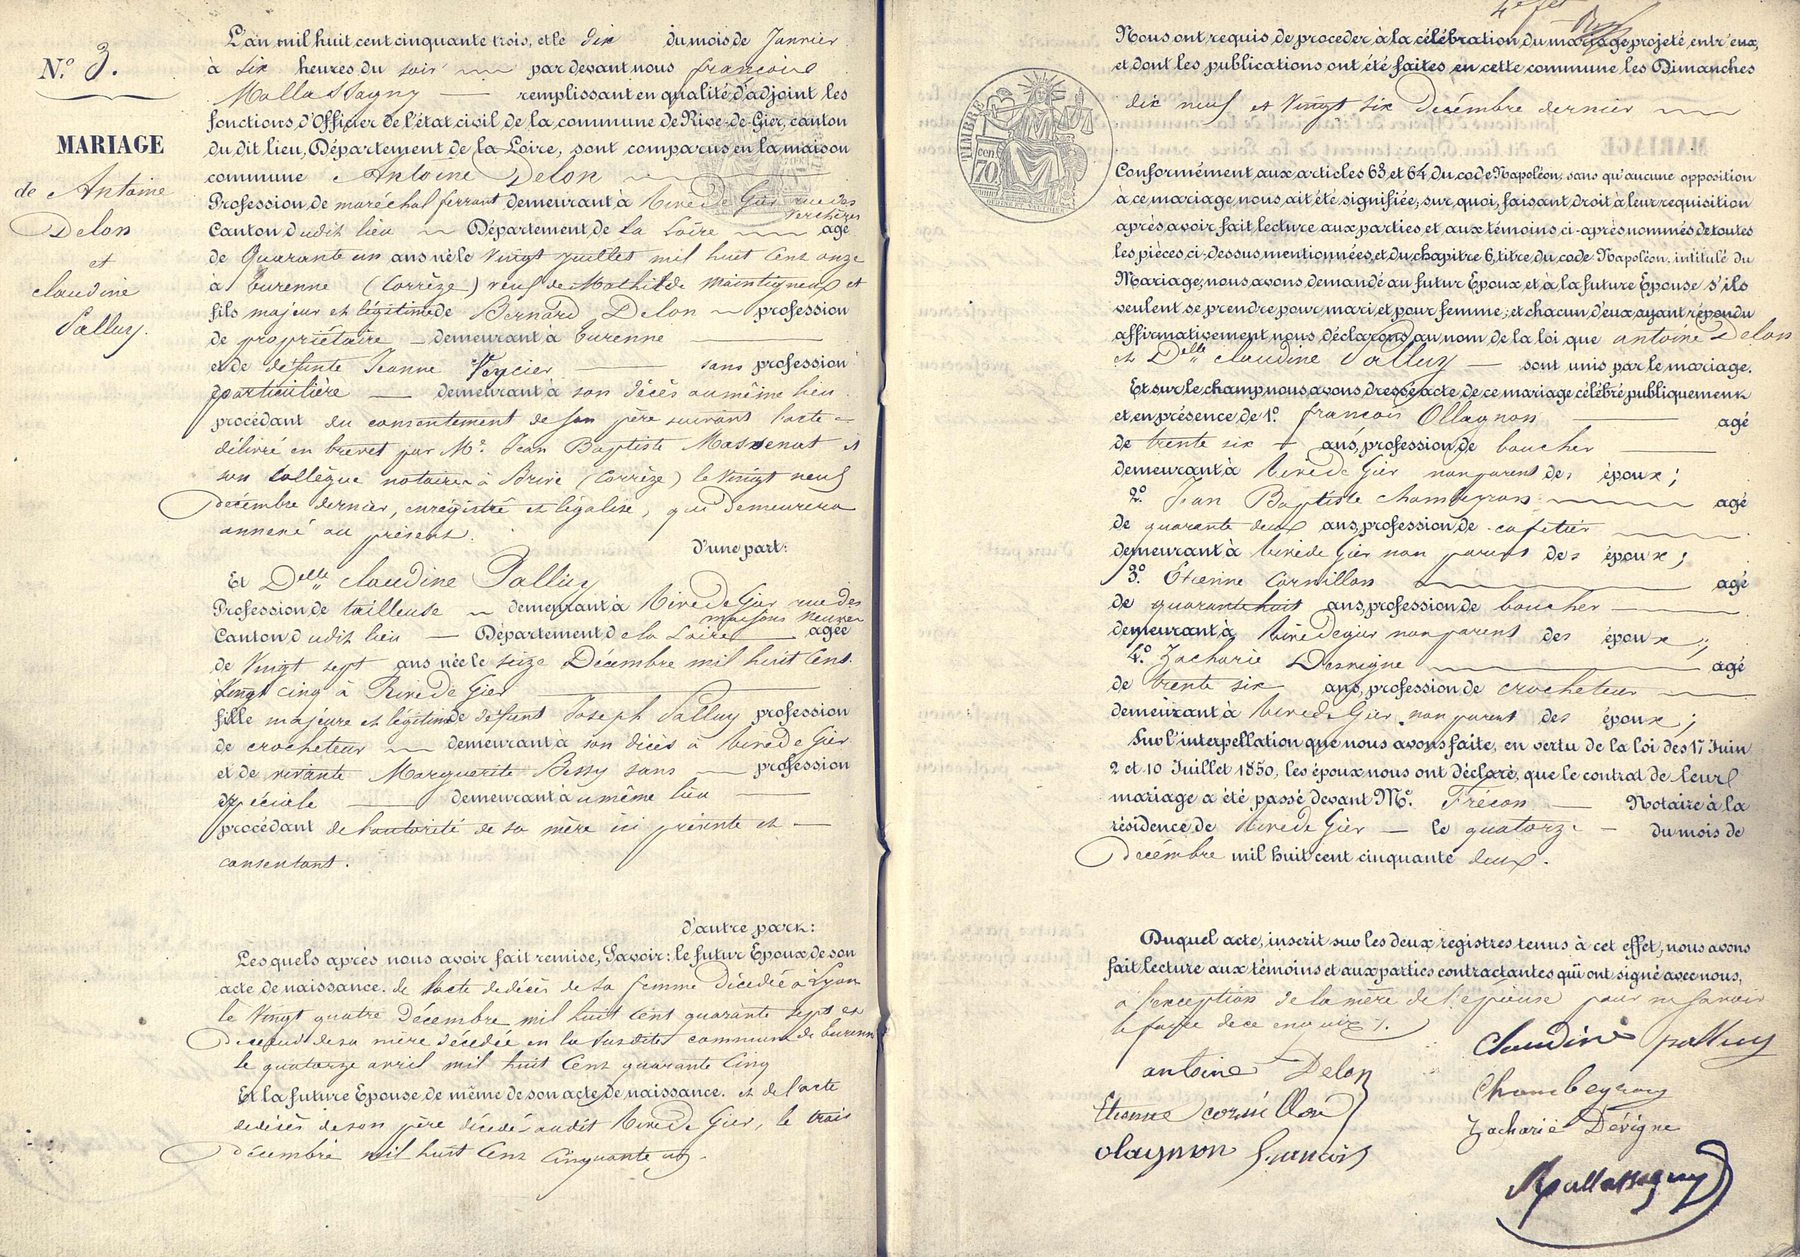 N.° 3.
MARIAGE
de Antoine
Delon
et
claudine
Palluy.
L'an mil huit cent cinquante trois, et le dix du mois de Janvier
à six heures du soir par devant nous françois
Mallassagny remplissant en qualité d'adjoint les
fonctions d'Officier de l'état civil de la commune de Rive-de-Gier, canton
du dit lieu, Département de la Loire, sont comparus en la maison
commune Antoine Delon
Profession de maréchal ferrant demeurant à Rive de Gier rue des
verchères
Canton dudit lieu Département de la Loire agé
de Quarante un ans né le vingt juillet mil huit cent onze
à Turenne (Corrèze) veuf de Mathilde et
fils majeur et légitime de Bernard Delon profession
de propriétaire demeurant à Turenne
et de défunte Jeanne sans profession
particulière demeurant à son décès au même lieu
procédant du consentement de son père suivant l'acte
délivré en brevet par M.e Jean Baptiste Massenat et
son collègue notaires à Brive (Corrèze) le vingt neuf
décembre dernier, enregistré et légalisé, qui demeurera
annexé au présent.
d'une part:
Et Delle claudine Palluy
Profession de tailleuse demeurant à Rive de Gier rue des
maisons neuves
Canton dudit lieu Département de la Loire agée
de vingt sept ans née le seize Décembre mil huit cent
vingt cinq à Rive de Gier
fille majeure et légitime de défunt Joseph Palluy profession
de crocheteur demeurant à son décès à Rive de Gier
et de vivante Marguerite Bessy sans profession
spéciale demeurant au même lieu
procédant de l'autorité de sa mère ici présente et
consentant.
d'autre part:
Lesquels après nous avoir fait remise, Savoir: le futur Epoux de son
acte de naissance. de l'acte de décès de sa femme décédée à Lyon
le vingt quatre Décembre mil huit cent quarante sept et
de ceux de sa mère décédée en la susdite commune de Turenne
le quatorze avril mil huit cent quarante cinq
Et la future Epouse de même de son acte de naissance. et de l'acte
de décès de son père décédé audit Rive de Gier, le trois
décembre mil huit cent cinquante un.
Nous ont requis de proceder à la célébration du mariage projeté entr'eux,
et dont les publications ont été faites en cette commune les Dimanches
dix neuf et vingt six Decémbre dernier
TIMBRE
70 cen
Conformément aux articles 63 et 64 du code Napoléon, sans qu'aucune opposition
à ce mariage nous ait été signifiée; sur quoi, faisant droit à leur requisition
après avoir fait lecture aux parties et aux témoins ci-après nommés de toutes
les pièces ci-dessus mentionnées, et du chapitre 6, titre du code Napoléon, intitulé du
Mariage, nous avons demandé au futur Epoux et à la future Epouse s'ils
veulent se prendre pour mari et pour femme; et chacun d'eux ayant répondu
affirmativement, nous déclarons au nom de la loi que antoine Delon
et Delle claudine Palluy sont unis par le mariage.
Et sur le champ nous avons dressé acte de ce mariage célébré publiquement
et en présence de 1.° françois Ollagnon agé
de trente six ans, profession de boucher
demeurant à Rive de Gier non parent des époux;
2.° Jean Baptiste Chambeyron agé
de quarante deux ans, profession de cafetier
demeurant à Rive de Gier non parent des époux;
3.° Étienne Cornillon agé
de quarante huit ans, profession de boucher
demeurant à Rive de gier non parent des époux;
4.° Zacharie Desvigne agé
de trente six ans, profession de crocheteur
demeurant à Rive de Gier non parent des époux;
Sur l'interpellation que nous avons faite, en vertu de la loi des 17 Juin
2 et 10 Juillet 1850, les époux nous ont déclaré, que le contrat de leur
mariage a été passé devant M.e Frécon Notaire à la
résidence de Rive de Gier le quatorze du mois de
Decémbre mil huit cent cinquante deux.
Duquel acte, inscrit sur les deux registres tenus à cet effet, nous avons
fait lecture aux témoins et aux parties contractantes qui ont signé avec nous,
a l'exception de la mère de l'épouse pour ne savoir
le faire de ce enquise.
Claudine palluy
antoine Delon
Chambeyron
Etienne cornillon
Zacharie Dévigne
olagnon francois
Mallassagny